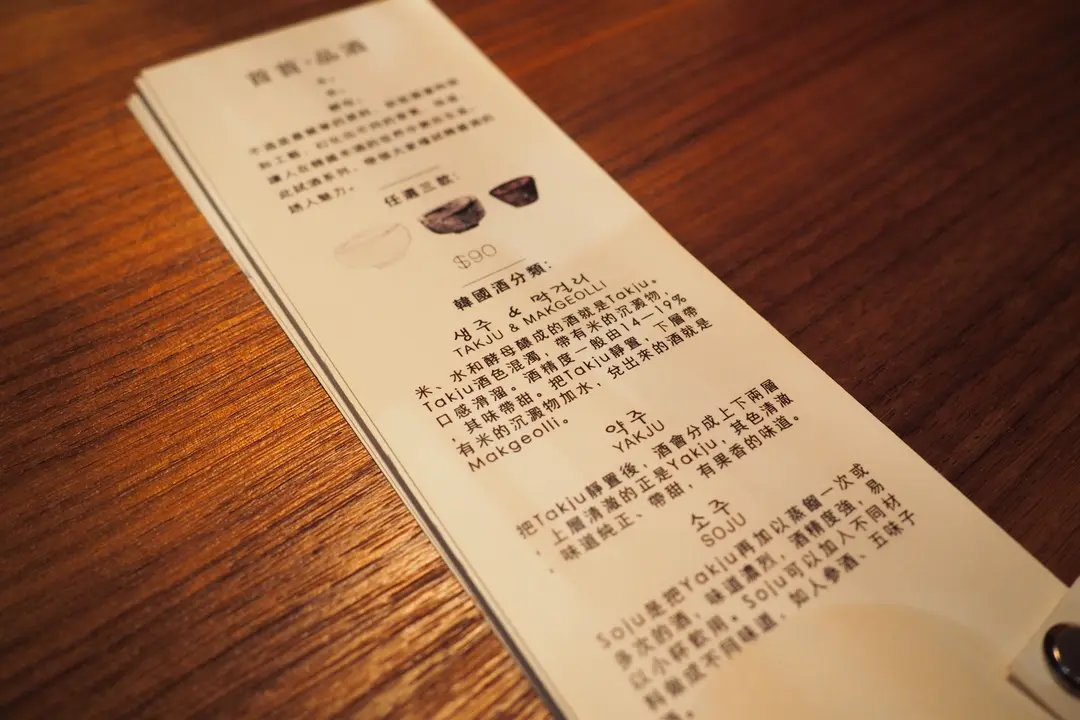 品酒
米、
水、
酵母，
此試酒系列，帶領大家尋試韓國酒的
誘人魅力。
任選三款:
$90
韓國酒分類:
생주 & 막걸리
TAKJU & MAKGEOLLI
米、水和酵母釀成的酒就是Takju。
Takju酒色混濁，帶有米的沉澱物，
口感滑溜。酒精度一般由14—19%
，其味帶甜。把Takju靜置，下層帶
有米的沉澱物加水，兌出來的酒就是
Makgeolli。
약주
YAKJU
把Takju靜置後，酒會分成上下兩層
，上層清澈的正是Yakju，其色清澈
、味道純正、帶甜，有果香的味道。
소주
SOJU
Soju是把Yakju再加以蒸餾一次或
多次的酒，味道濃烈，酒精度強，易
以小杯飲用。Soju可以加入不同材
料變成不同味道，如人參酒、五味子
酒。